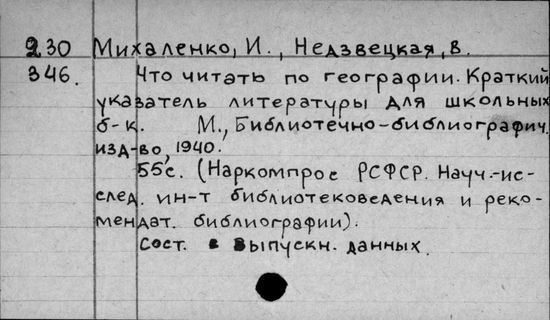 230 Михаленко, И., Недзвецкая, В.
346. Что читать по географии. Краткий
указатель литературы для школьных
б-к. М., Библиотечно-библиографич.
изд-во, 1940.
55с. (Наркомпрос РСФСР. Науч.-ис-
след. ин-т библиотековедения и реко-
мендат. библиографии).
Сост. в выпускн. данных.